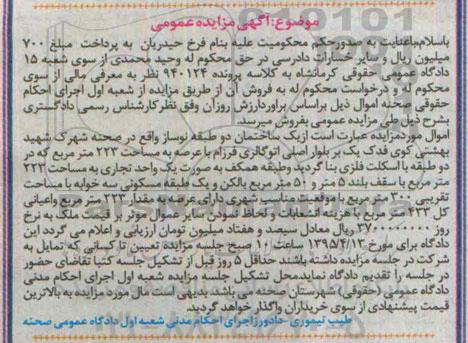 موضوع:آگهی مزایده عمومی
باسلام،باعنایت به صدورحکم محکومیت علیه بنام فرخ حیدریان به پرداخت مبلغ ۷۰۰
میلیون ریال و سایر خسارات دادرسی در حق محکوم له وحید محمدی از سوی شعبه ۱۵
دادگاه عمومی حقوقی کرمانشاه به کلاسه پرونده ۹۴۰۱۲۴ نظر به معرفی مالی از سوی
محکوم له و درخواست محکوم له به فروش آن از طریق مزایده از شعبه اول اجرای احکام
حقوقی صحنه اموال ذیل براساس برآوردارزش روزآن وفق نظرکارشناس رسمی دادگستری
بشرح ذیل طی مزایده عمومی بفروش میرسد.
اموال موردمزایده عبارت است ازیک ساختمان دو طبقه نوساز واقع در صحنه شهرک شهید
بهشتی کوی فدک یک بر بلوار اصلی اتوگالری فرزام باعرصه به مساحت ۲۲۳ متر مربع که در
دو طبقه با اسکلت فلزی بنا گردید وطبقه همکف به صورت یک واحد تجاری به مساحت ۲۲۳
متر مربع با سقف بلند ۵ متر و ۵۰ متر مربع بالکن و یک طبقه مسکونی سه خوابه با مساحت
تقریبی ۲۰۰ متر مربع با موقعیت مناسب شهری دارای عرصه به مقدار ۲۲۳ متر مربع واعیانی
کل ۴۳۳ متر مربع با هزینه انشعابات و لحاظ نمودن سایر عموال موثر و قیمت ملک به نرخ
روز ۳۷۰۰۰۰۰۰۰۰ ریال معادل سیصد و هفتاد میلیون تومان ارزیابی و اعلام می گردد این
دادگاه برای مورخ ۱۳۹۵/۴/۱۳ ساعت ۱۰ صبح جلسه مزایده تعیین تا کسانی که تمایل به
شرکت در جلسه مزایده داشته باشند حداقل ۵ روز قبل از تشکیل جلسه کتبا تقاضای حضور
در جلسه را تقدیم دادگاه نماید.محل تشکیل جلسه مزایده شعبه اول اجرای احکام مدنی
دادگاه عمومی (حقوقی) شهرستان صحنه می باشد بدیهی است مال مورد مزایده به بالاترین
قیمت پیشنهادی از سوی خریداران واگذار خواهد گردید.
طیب تیموری -دادورزاجرای احکام مدنی شعبه اول دادگاه عمومی صحنه